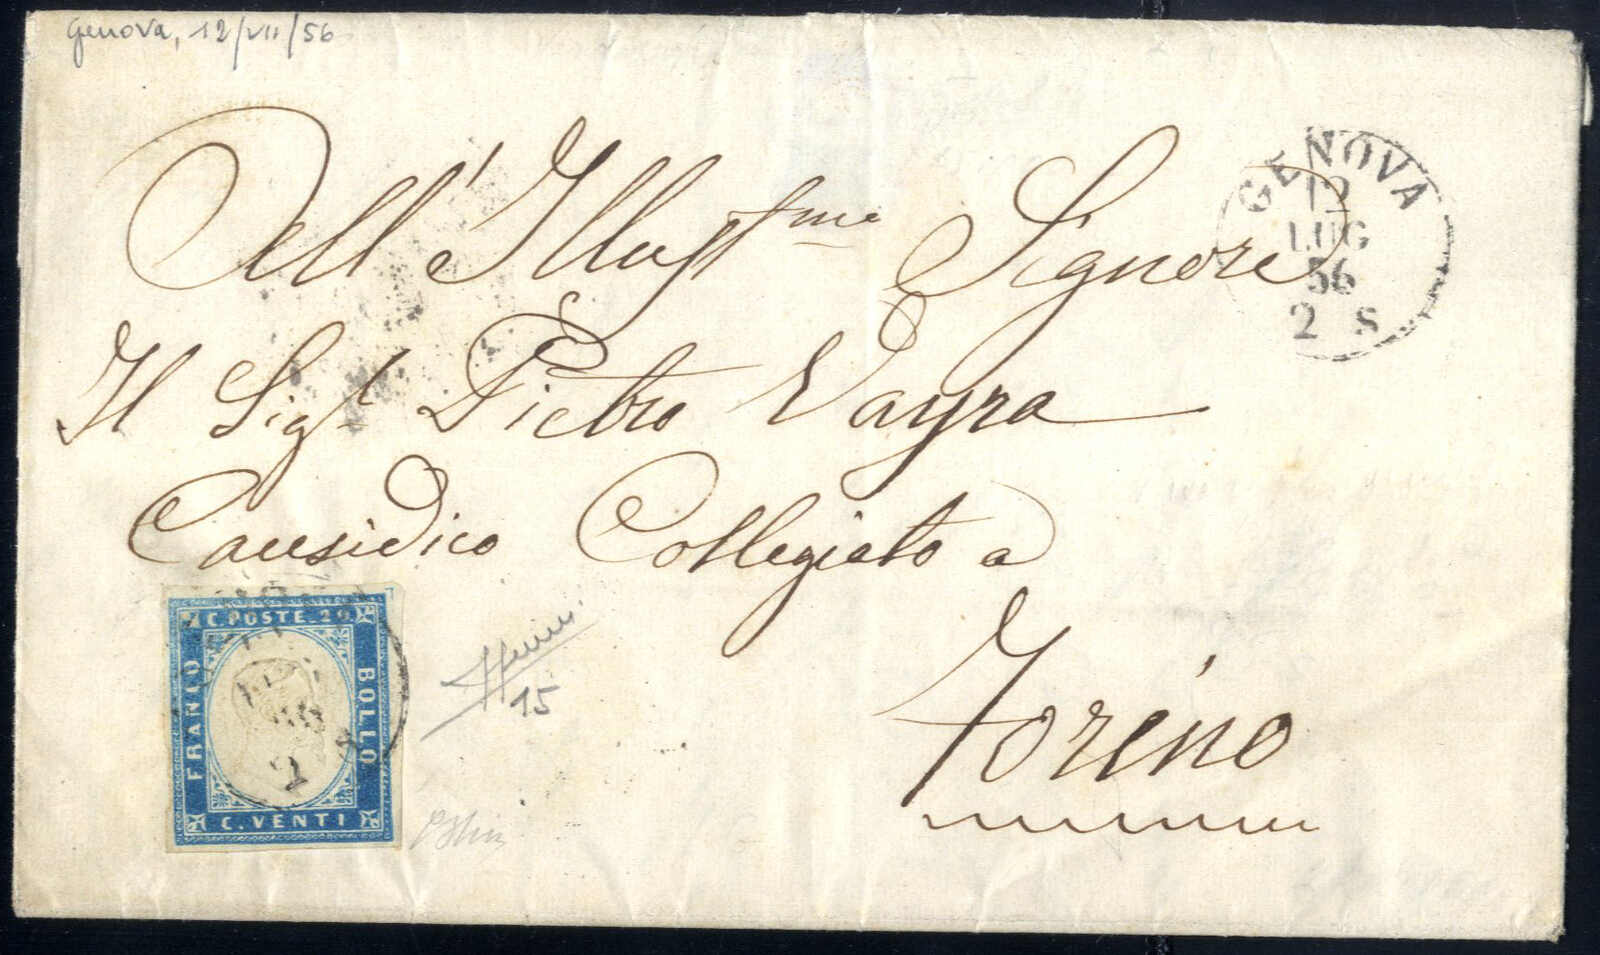 Genova, 12/VII/56
Dell' Illust.me Signore
Il Sigr. Pietro Vayra
Causidico Collegiato a
Torino
GENOVA
12
LUG
56
2 S
C. POSTE. 20.
FRANCO
BOLLO
C. VENTI
56
2
15